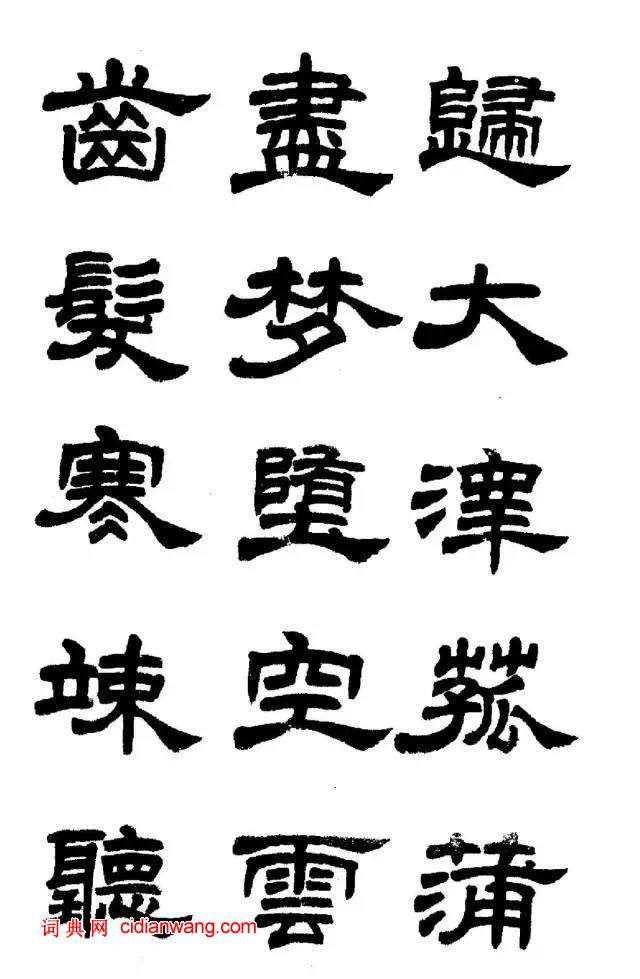 歸大澤菰蒲
盡梦墮空雲
齒髮寒竦聽
词典网 cidianwang.com